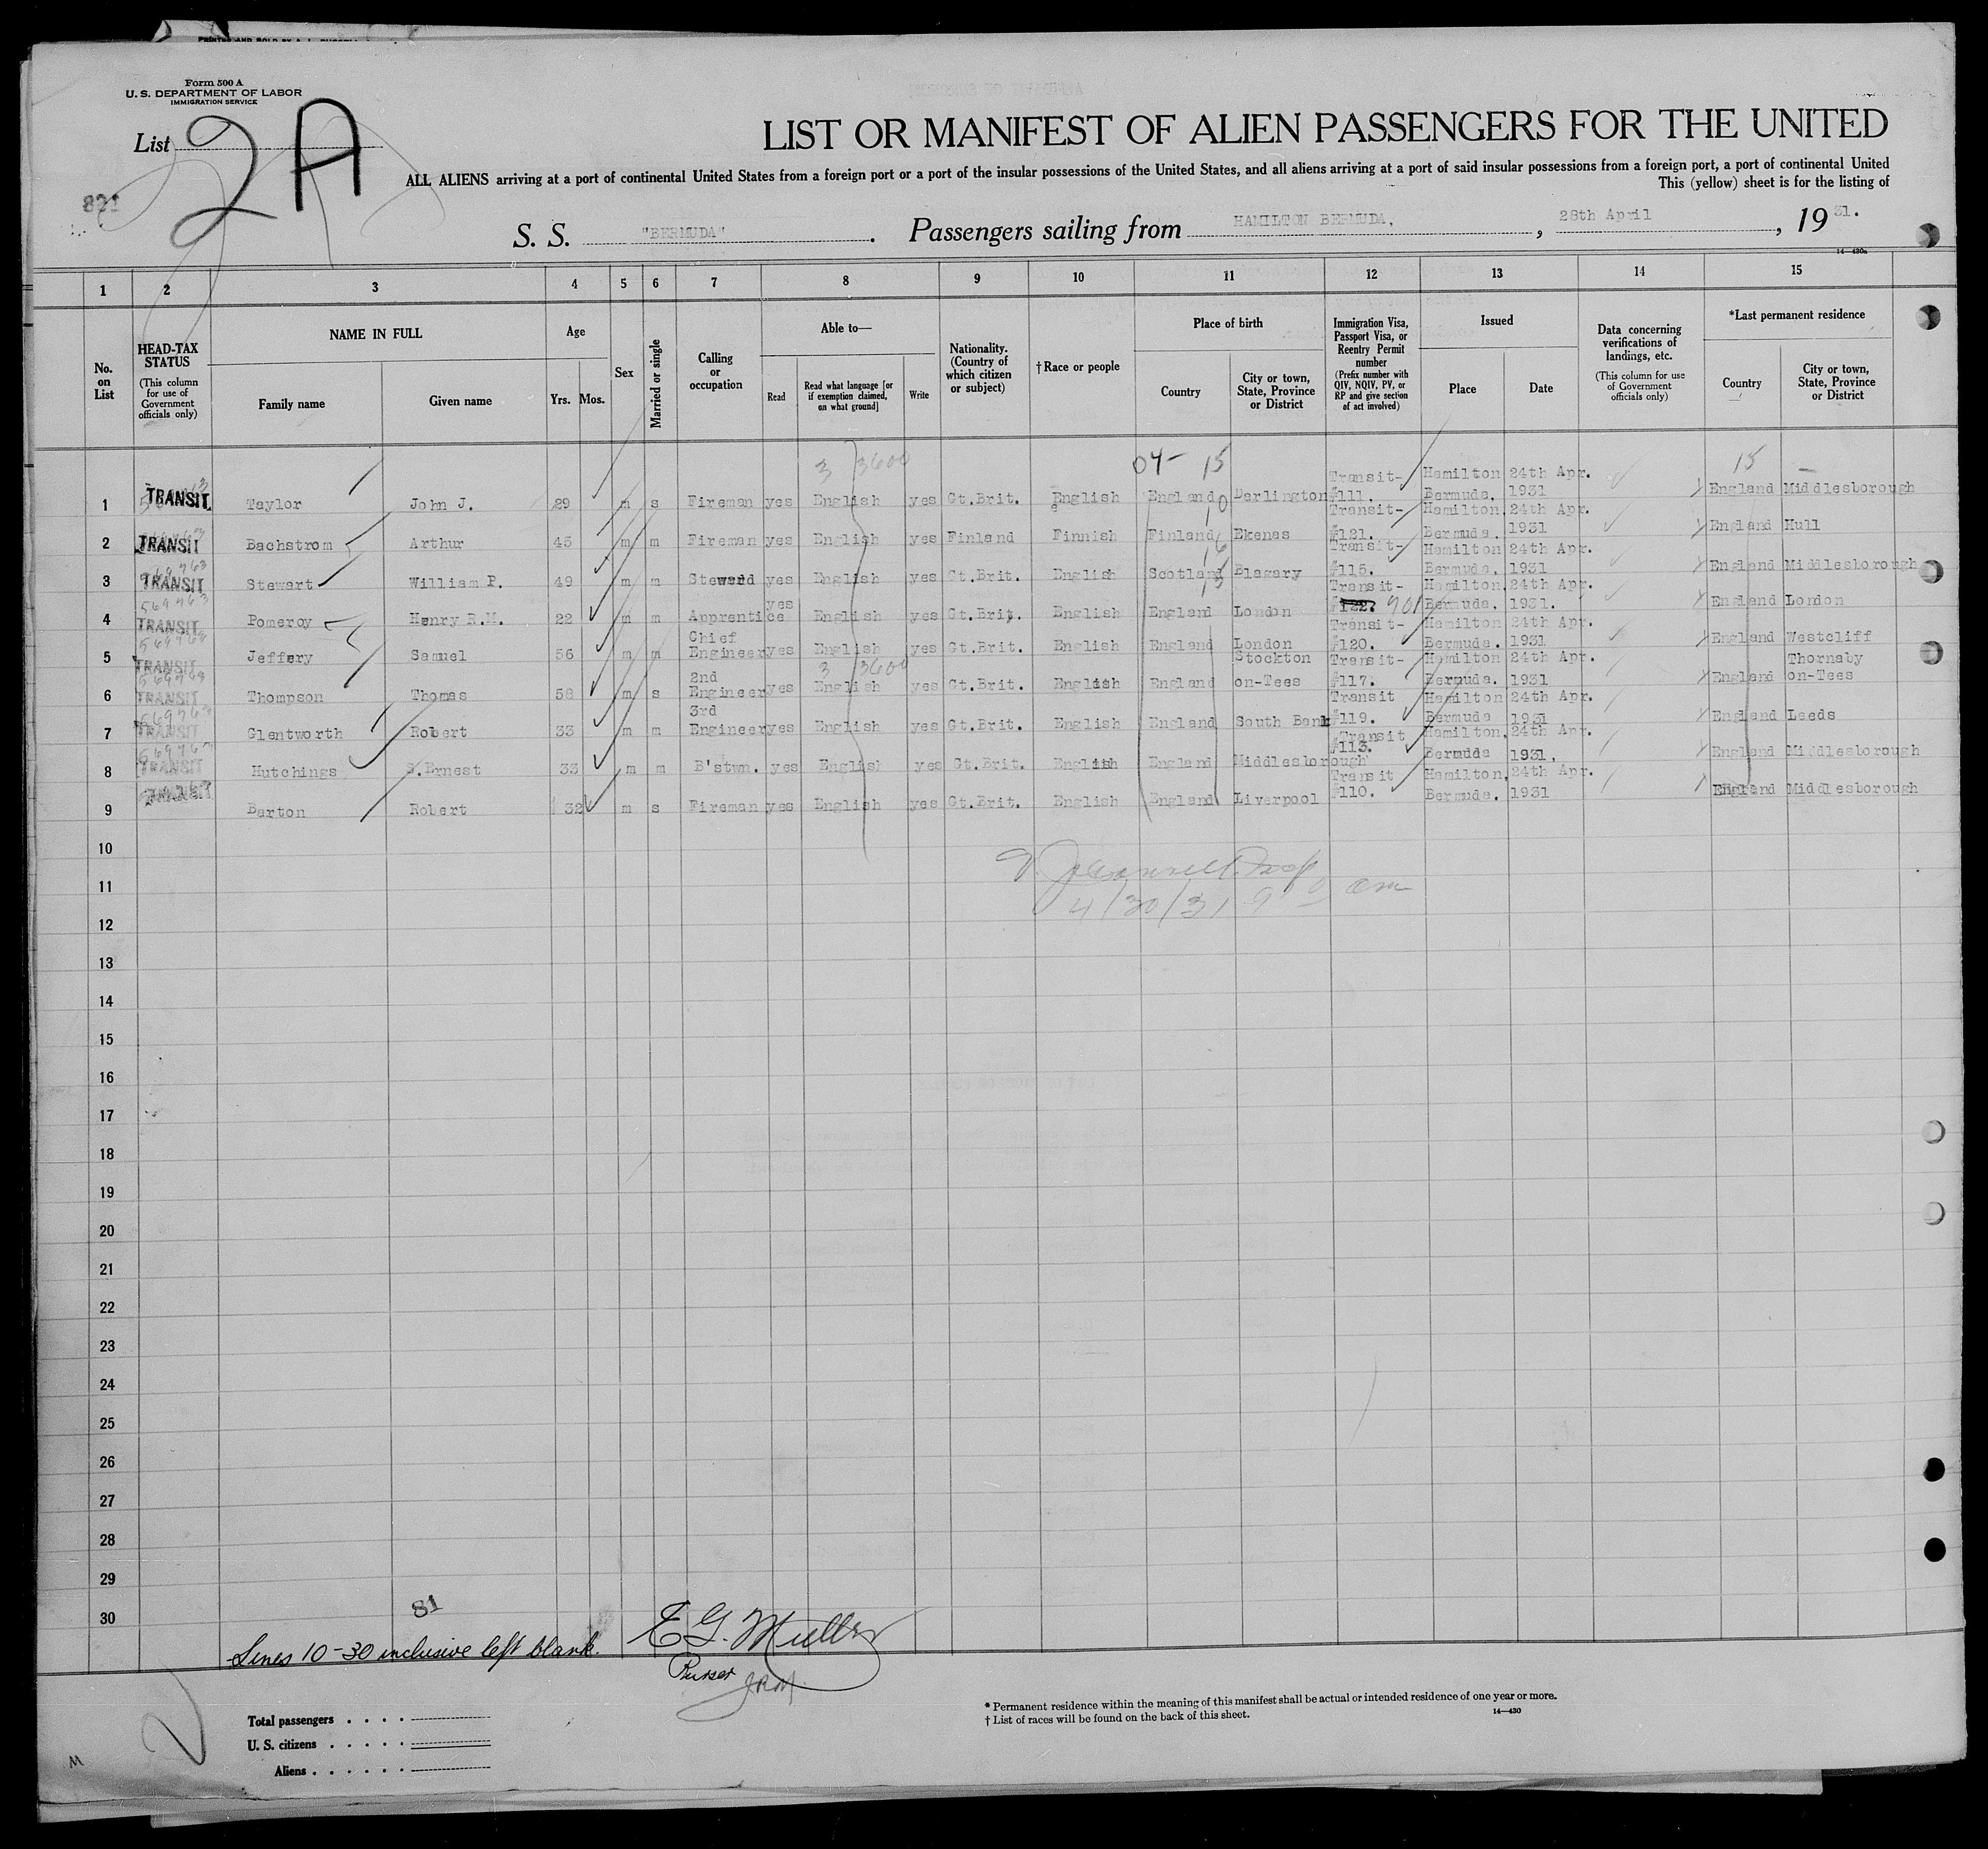 Form 500 A
U. S. DEPARTMENT OF LABOR
IMMIGRATION SERVICE
List 2 A
LIST OR MANIFEST OF ALIEN PASSENGERS FOR THE UNITED
ALL ALIENS arriving at a port of continental United States from a foreign port or a port of the insular possessions of the United States, and all aliens arriving at a port of said insular possessions from a foreign port, a port of continental United
This (yellow) sheet is for the listing of
S. S. "BERMUDA". Passengers sailing from HAMILTON BERMUDA, , 28th April , 19 31.
14—430a
1 2 3 4 5 6 7 8 9 10 11 12 13 14 15
No. on List
HEAD-TAX STATUS (This column for use of Government officials only)
NAME IN FULL
Family name Given name
Age
Yrs. Mos.
Sex
Married or single
Calling or occupation
Able to—
Read
Read what language [or if exemption claimed, on what ground]
Write
Nationality. (Country of which citizen or subject)
† Race or people
Place of birth
Country
City or town, State, Province or District
Immigration Visa, Passport Visa, or Reentry Permit number (Prefix number with QIV, NQIV, PV, or RP and give section of act involved)
Issued
Place Date
Data concerning verifications of landings, etc. (This column for use of Government officials only)
*Last permanent residence
Country
City or town, State, Province or District
3 3600 04- 15 15 —
1 TRANSIT Taylor John J. 29 m s Fireman yes English yes Gt.Brit. English England Darlington Transit- #111. Hamilton Bermuda. 24th Apr. 1931 England Middlesborough
2 TRANSIT Bachstrom Arthur 45 m m Fireman yes English yes Finland Finnish Finland Ekenas Transit- #121. Hamilton Bermuda. 24th Apr. 1931 England Hull
3 TRANSIT Stewart William P. 49 m m Steward yes English yes Gt.Brit. English Scotland Blagary Transit- #115. Hamilton Bermuda. 24th Apr. 1931 England Middlesborough
4 TRANSIT Pomeroy Henry R.M. 22 m m Apprentice yes English yes Gt.Brit. English England London Transit- #122. 901 Hamilton Bermuda. 24th Apr. 1931. England London
5 TRANSIT Jeffery Samuel 56 m m Chief Engineer yes English yes Gt.Brit. English England London Transit- #120. Hamilton Bermuda. 24th Apr. 1931 England Westcliff
3 3600
6 TRANSIT Thompson Thomas 58 m s 2nd Engineer yes English yes Gt.Brit. English England Stockton on-Tees Transit- #117. Hamilton Bermuda. 24th Apr. 1931 England Thornaby on-Tees
7 TRANSIT Glentworth Robert 33 m m 3rd Engineer yes English yes Gt.Brit. English England South Bank Transit #119. Hamilton Bermuda 24th Apr. 1931 England Leeds
8 TRANSIT Hutchings S. Ernest 33 m m B'stwn. yes English yes Gt.Brit. English England Middlesborough Transit #113. Hamilton, Bermuda 24th Apr. 1931. England Middlesborough
9 TRANSIT Barton Robert 32 m s Fireman yes English yes Gt.Brit. English England Liverpool Transit #110. Hamilton, Bermuda. 24th Apr. 1931 England Middlesborough
10
11
4/30/31 9 am
12
13
14
15
16
17
18
19
20
21
22
23
24
25
26
27
28
29
30
81
Lines 10-30 inclusive left blank.
E G. Muller
Purser
Total passengers
U. S. citizens
Aliens
* Permanent residence within the meaning of this manifest shall be actual or intended residence of one year or more.
† List of races will be found on the back of this sheet.
14—430
M